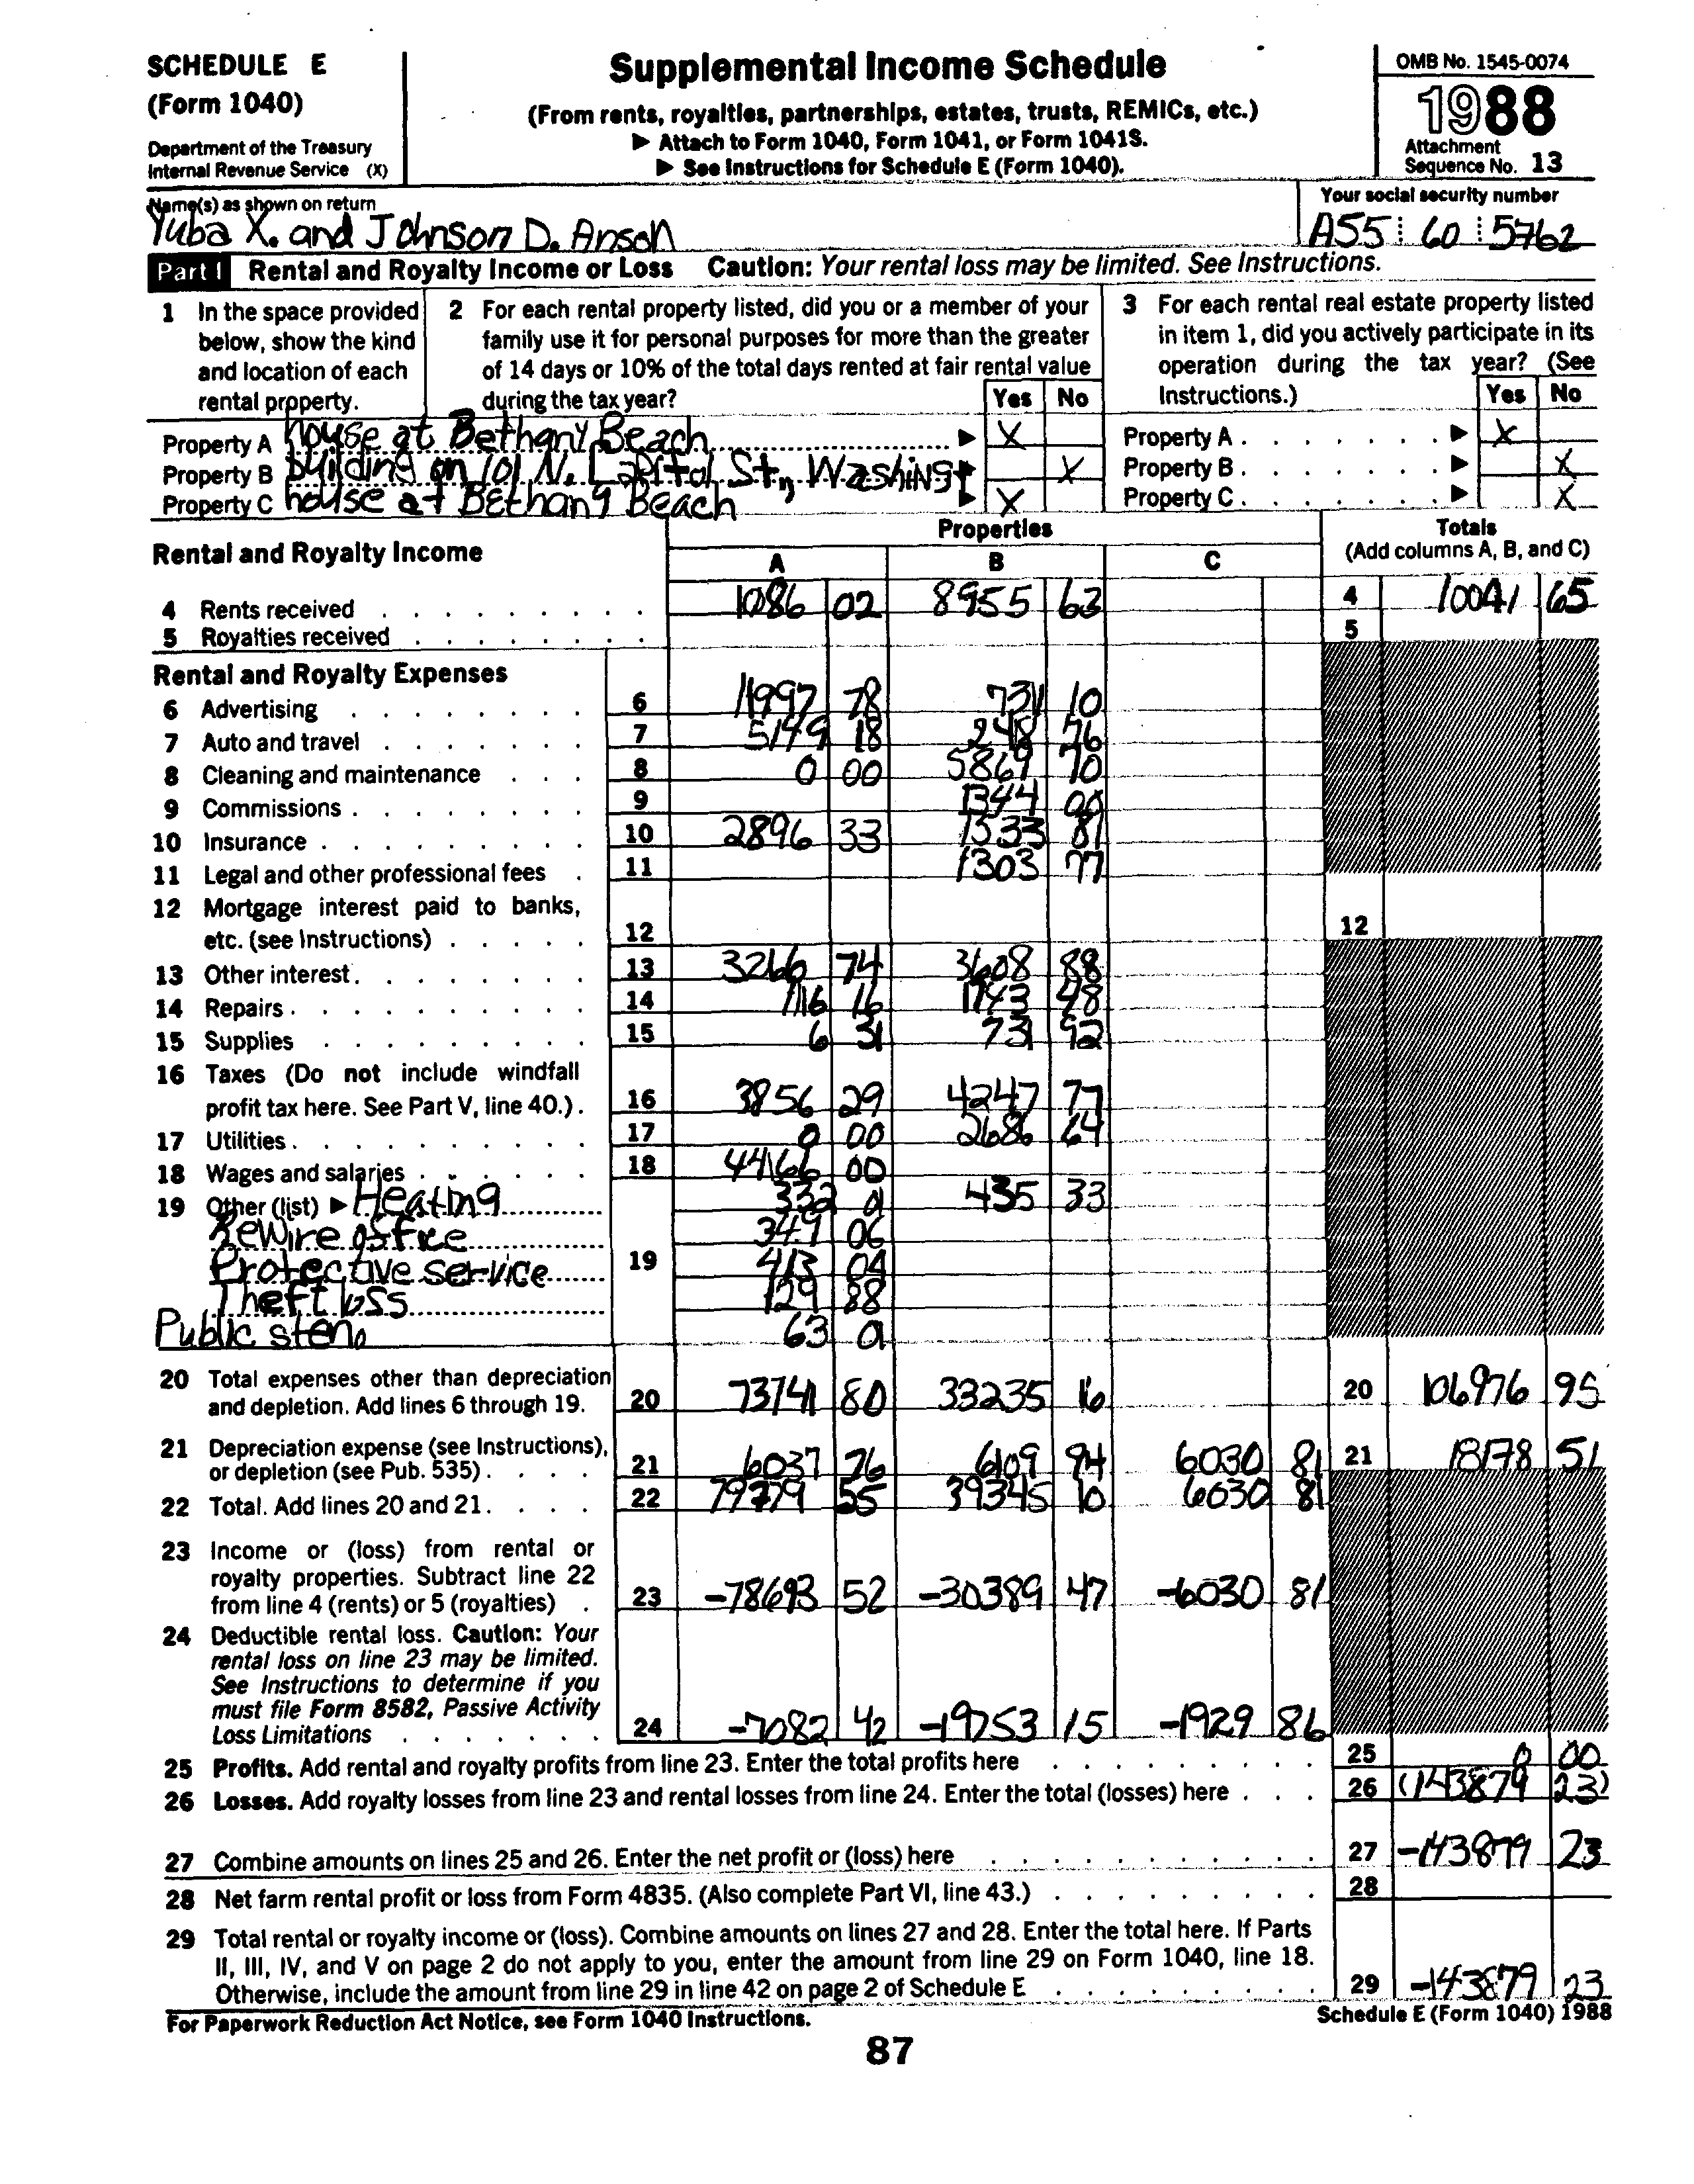 SCHEDULE E
(Form 1040)
Department of the Treasury
Internal Revenue Service (X)
Supplemental Income Schedule
(From rents, royalties, partnerships, estates, trusts, REMICs, etc.)
▶ Attach to Form 1040, Form 1041, or Form 1041S.
▶ See Instructions for Schedule E (Form 1040).
OMB No. 1545-0074
1988
Attachment
Sequence No. 13
Name(s) as shown on return
Yuba X. and Johnson D. Anson
Your social security number
A55 60 5762
Part I Rental and Royalty Income or Loss Caution: Your rental loss may be limited. See Instructions.
1 In the space provided
below, show the kind
and location of each
rental property.
2 For each rental property listed, did you or a member of your
family use it for personal purposes for more than the greater
of 14 days or 10% of the total days rented at fair rental value
during the tax year?
Yes No
3 For each rental real estate property listed
in item 1, did you actively participate in its
operation during the tax year? (See
Instructions.)
Yes No
Property A house at Bethany Beach ▶ X Property A ▶ X
Property B building on 101 N. Capitol St., Washingt ▶ X Property B ▶ X
Property C house at Bethany Beach ▶ X Property C ▶ X
Rental and Royalty Income
Properties
A B C
Totals
(Add columns A, B, and C)
4 Rents received 1086 02 8955 63 4 10041 65
5 Royalties received 5
Rental and Royalty Expenses
6 Advertising 6 11997 78 731 10
7 Auto and travel 7 5149 18 248 76
8 Cleaning and maintenance 8 0 00 5869 70
9 Commissions 9 1344 00
10 Insurance 10 2896 33 1333 81
11 Legal and other professional fees 11 1303 77
12 Mortgage interest paid to banks,
etc. (see Instructions) 12 12
13 Other interest 13 3266 74 3608 88
14 Repairs 14 1116 16 1743 48
15 Supplies 15 6 31 731 92
16 Taxes (Do not include windfall
profit tax here. See Part V, line 40.) 16 3856 29 4247 77
17 Utilities 17 0 00 2686 64
18 Wages and salaries 18 44166 00
19 Other (list) ▶ Heating 332 01 435 33
Rewire office 349 06
Protective service 19 413 04
Theft loss 129 88
Public steno 63 01
20 Total expenses other than depreciation
and depletion. Add lines 6 through 19. 20 73741 80 33235 16 20 106976 95
21 Depreciation expense (see Instructions),
or depletion (see Pub. 535) 21 6037 76 6109 94 6030 81 21 18178 51
22 Total. Add lines 20 and 21 22 79779 55 39345 10 6030 81
23 Income or (loss) from rental or
royalty properties. Subtract line 22
from line 4 (rents) or 5 (royalties) 23 -78693 52 -30389 47 -6030 81
24 Deductible rental loss. Caution: Your
rental loss on line 23 may be limited.
See Instructions to determine if you
must file Form 8582, Passive Activity
Loss Limitations 24 -7082 42 -19753 15 -1929 86
25 Profits. Add rental and royalty profits from line 23. Enter the total profits here 25 0 00
26 Losses. Add royalty losses from line 23 and rental losses from line 24. Enter the total (losses) here 26 (143879 23)
27 Combine amounts on lines 25 and 26. Enter the net profit or (loss) here 27 -143879 23
28 Net farm rental profit or loss from Form 4835. (Also complete Part VI, line 43.) 28
29 Total rental or royalty income or (loss). Combine amounts on lines 27 and 28. Enter the total here. If Parts
II, III, IV, and V on page 2 do not apply to you, enter the amount from line 29 on Form 1040, line 18.
Otherwise, include the amount from line 29 in line 42 on page 2 of Schedule E 29 -143879 23
For Paperwork Reduction Act Notice, see Form 1040 Instructions.
Schedule E (Form 1040) 1988
87